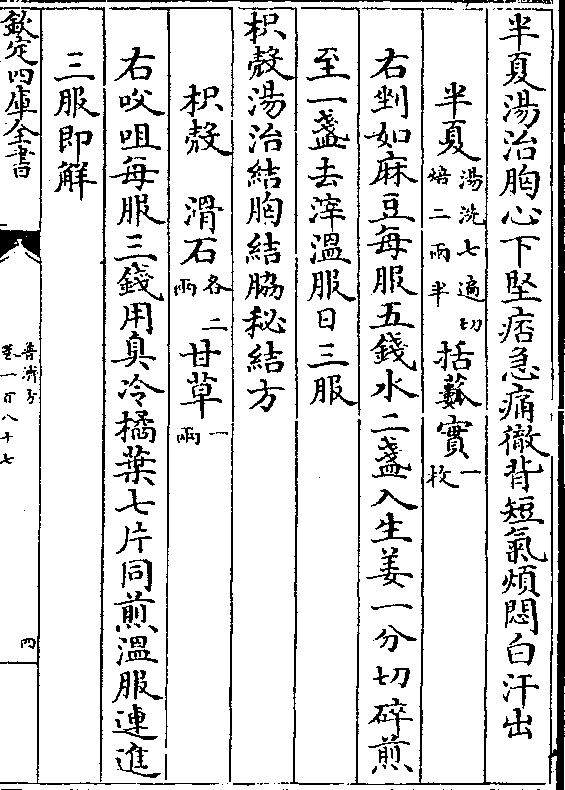 半夏湯治胸心下堅痞急痛徹背短氣煩悶白汗出
半夏湯洗七遍切焙二兩半 括蔞實一枚
右剉如麻豆每服五錢水二盞入生姜一分切碎煎
至一盞去滓溫服日三服
枳殼湯治結胸結脇秘結方
枳殼 滑石各二兩 甘草一兩
右㕮咀每服三錢用臭冷橘葉七片同煎溫服連進
三服即解
欽定四庫全書
普濟方
卷一百八十七
四